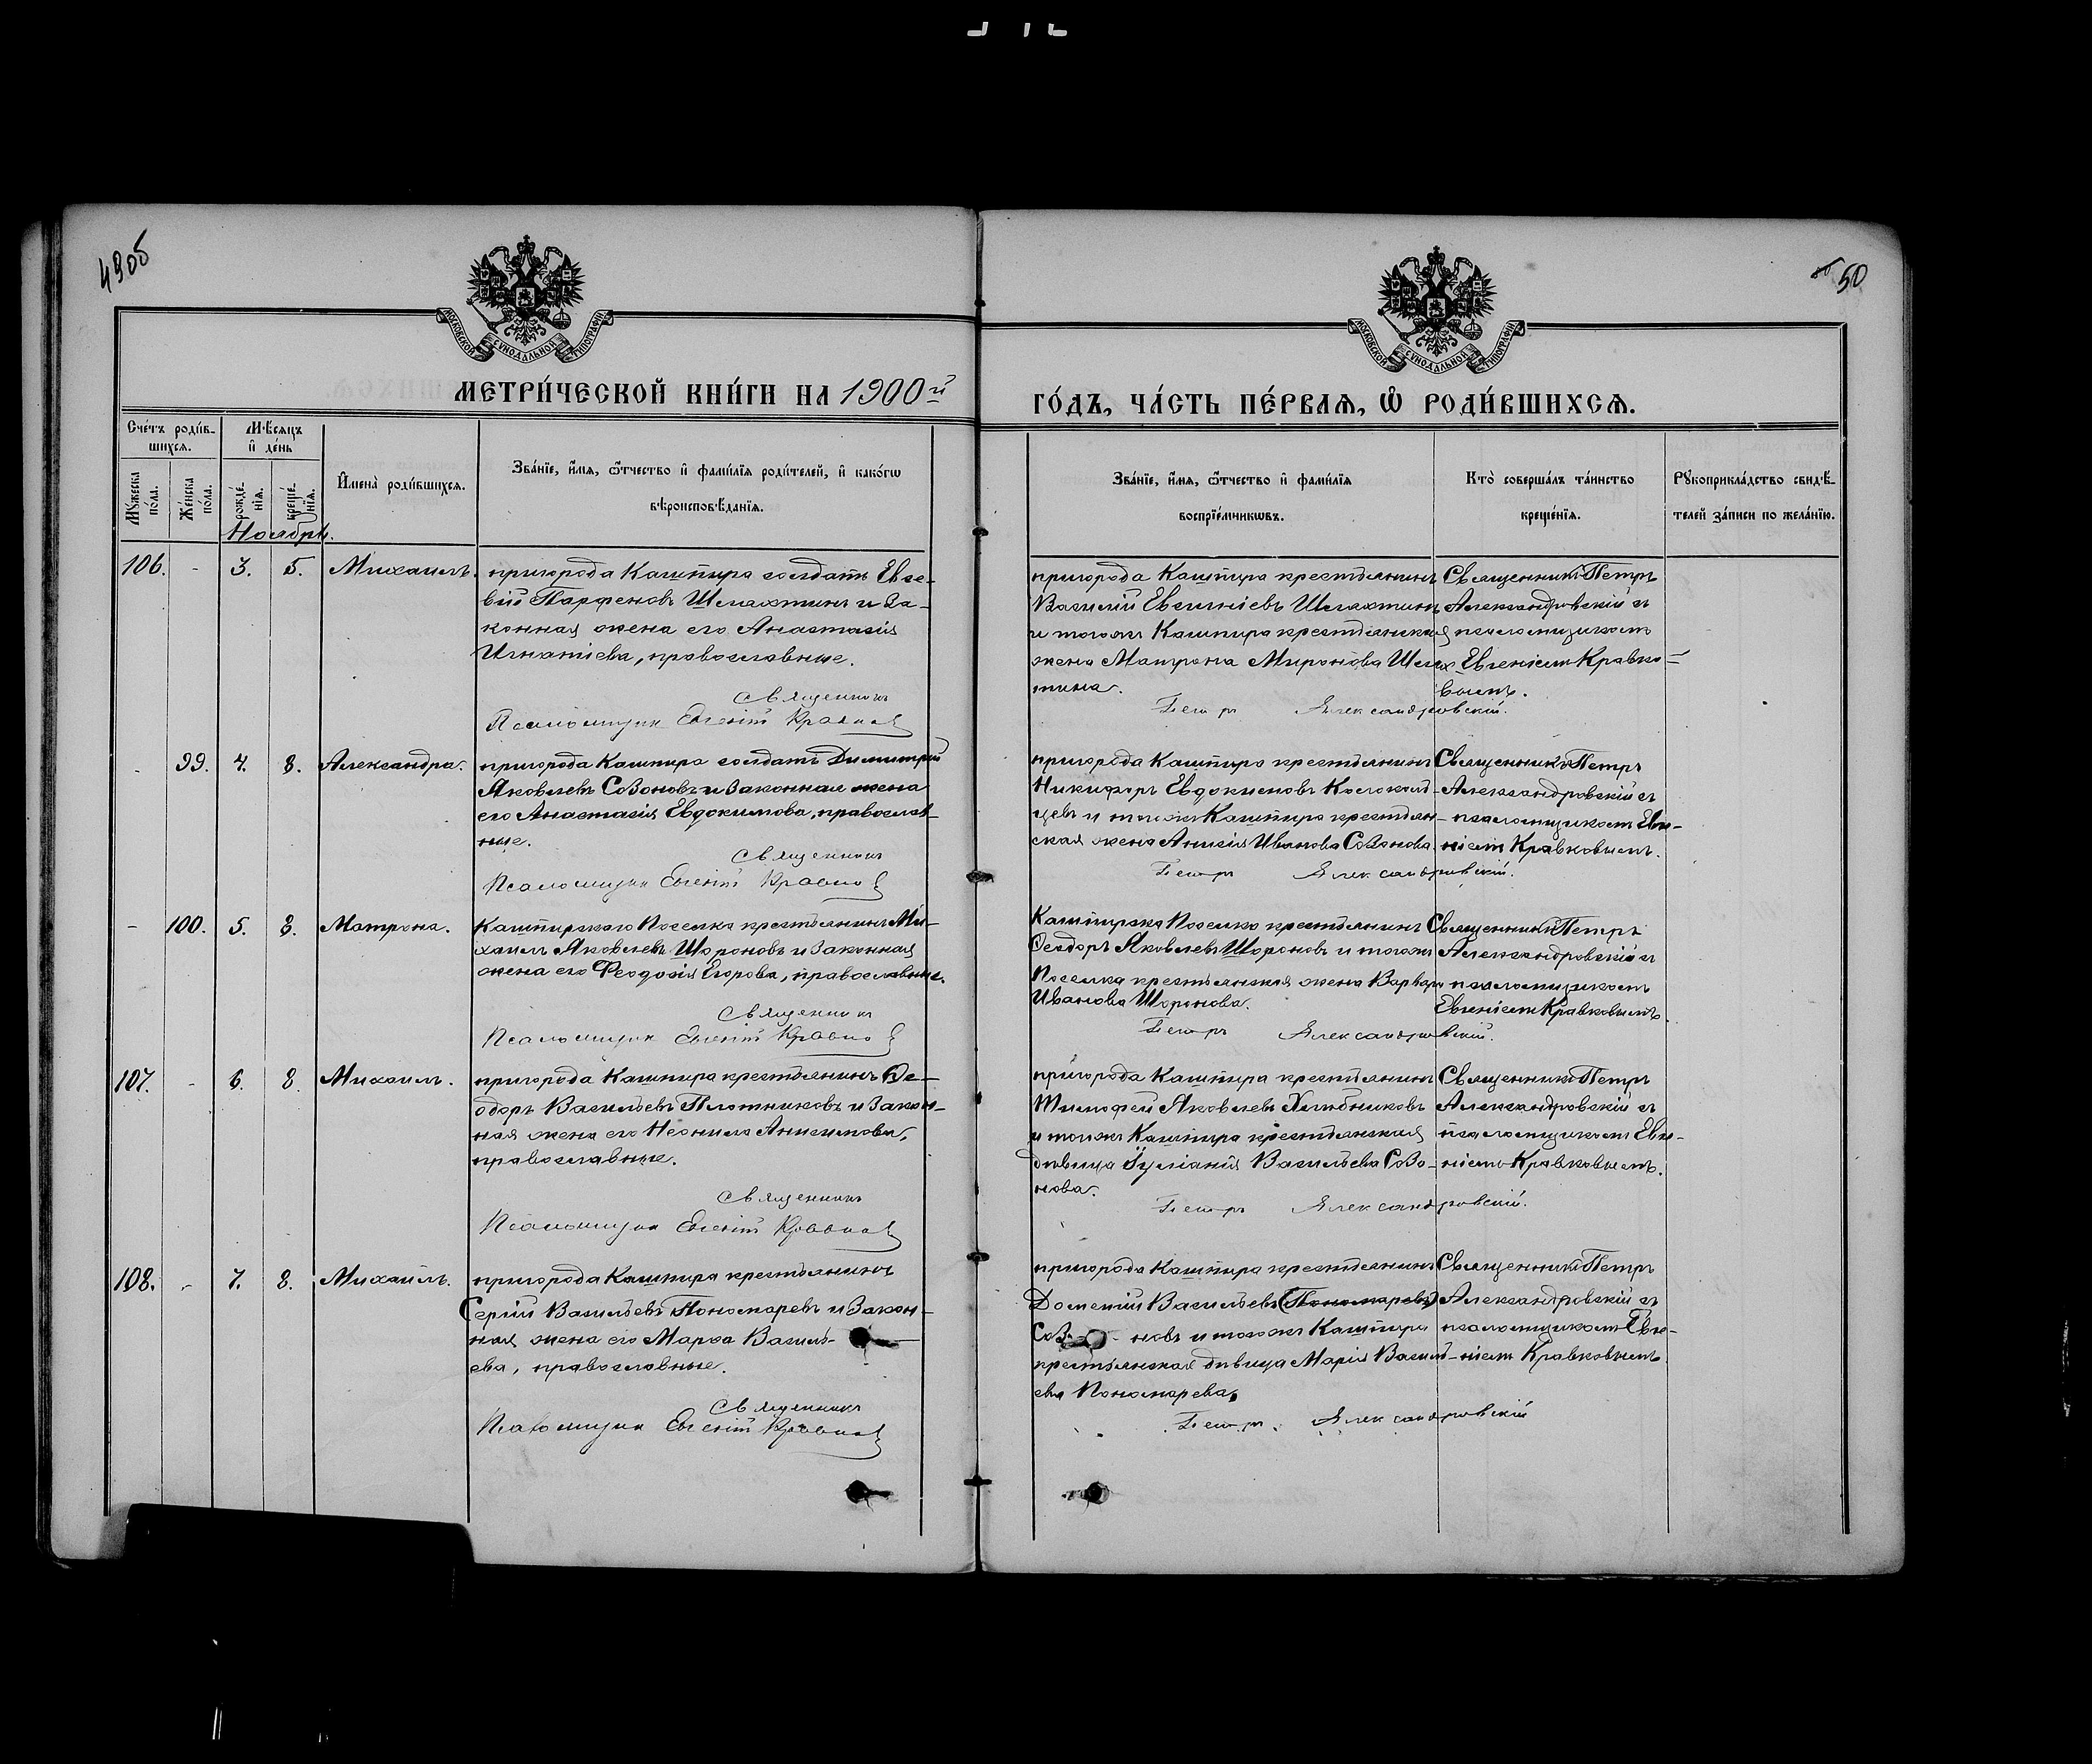 49об
50
МОСКОВСКОЙ СУНОДАЛЬНОЙ ТИПОГРАФІИ
МОСКОВСКОЙ СУНОДАЛЬНОЙ ТИПОГРАФІИ
МЕТРИ́ЧЕСКОЙ КНИ́ГИ НА 1900й
ГО́ДЪ, ЧА́СТЬ ПЕ́РВАѦ, Ѽ РОДИ́ВШИХСѦ.
Сче́тъ роди́в-
шихсѧ.
Мѣ́сѧцъ
и҆ де́нь
Мꙋ́жеска
по́ла.
Же́нска
по́ла.
рожде́-
нїѧ.
креще́-
нїѧ.
И҆мена̀ роди́вшихсѧ.
Зва́нїе, и҆́мѧ, ѻ҆́тчество и҆ фами́лїѧ роди́телей, и҆ како́гѡ
вѣроисповѣ́данїѧ.
Зва́нїе, и҆́мѧ, ѻ҆́тчество и҆ фами́лїѧ
воспрїе́мникѡвъ.
Кто̀ соверша́лъ та́инство
креще́нїѧ.
Рꙋкоприкла́дство свидѣ́-
телей за́писи по жела́нїю.
Ноябрь.
106. - 3. 5. Михаилъ.
пригорода Кашпира солдатъ Евсе-
вій Парфеновъ Шелахтинъ и за-
конная жена его Анастасія
Игнатіева, православные.
Священникъ
Псаломщик Евгеній Кравков
пригорода Кашпира крестьянинъ
Василій Евгеніевъ Шелахтинъ
и тогожъ Кашпира крестьянская
жена Матрона Миронова Шелах-
тина.
Петръ Александровскій.
Священникъ Петръ
Александровскій съ
псаломщикомъ
Евгеніемъ Кравко-
вымъ.
- 99. 4. 8. Александра.
пригорода Кашпира солдатъ Димитрій
Яковлевъ Созоновъ и законная жена
его Анастасія Евдокимова, православ-
ные.
Священникъ
Псаломщик Евгеній Кравков
пригорода Кашпира крестьянинъ
Никифоръ Евдокимовъ
цевъ и тогожъ Кашпира крестьян-
ская жена Анисія Иванова Созонова.
Петръ Александровскій.
Священникъ Петръ
Александровскій съ
псаломщикомъ Евге-
ніемъ Кравковымъ.
- 100. 5. 8. Матрона.
Кашпирскаго Поселка крестьянинъ Ми-
хаилъ Яковлевъ Шороновъ и законная
жена его Феодосія Егорова, православные.
Священникъ
Псаломщик Евгеній Кравков
Кашпирска Поселка крестьянинъ
Ѳеодоръ Яковлевъ Шороновъ и тогожъ
Поселка крестьянская жена Варвара
Иванова Шоронова.
Петръ Александровскій.
Священникъ Петръ
Александровскій съ
псаломщикомъ
Евгеніемъ Кравковымъ.
107. - 6. 8. Михаилъ.
пригорода Кашпира крестьянинъ Ѳе-
одоръ Васильевъ Плотниковъ и закон-
ная жена его Неонила Анисимова,
православные.
Священникъ
Псаломщик Евгеній Кравков
пригорода Кашпира крестьянинъ
Тимофей Яковлевъ Хлѣбниковъ
и тогожъ Кашпира крестьянская
дѣвица Іуліанія Васильева Созо-
нова.
Петръ Александровскій.
Священникъ Петръ
Александровскій съ
псаломщикомъ Евге-
ніемъ Кравковымъ.
108. - 7. 8. Михаилъ.
пригорода Кашпира крестьянинъ
Сергій Васильевъ Пономаревъ и закон-
ная жена его Марѳа Василь-
ева, православные.
Священникъ
Псаломщик Евгеній Кравков
пригорода Кашпира крестьянинъ
Дометій Васильевъ (Пономаревъ)
Соз новъ и тогожъ Кашпира
крестьянская дѣвица Марія Василь-
ева Пономарева.
Петръ Александровскій
Священникъ Петръ
Александровскій съ
псаломщикомъ Евге-
ніемъ Кравковымъ.